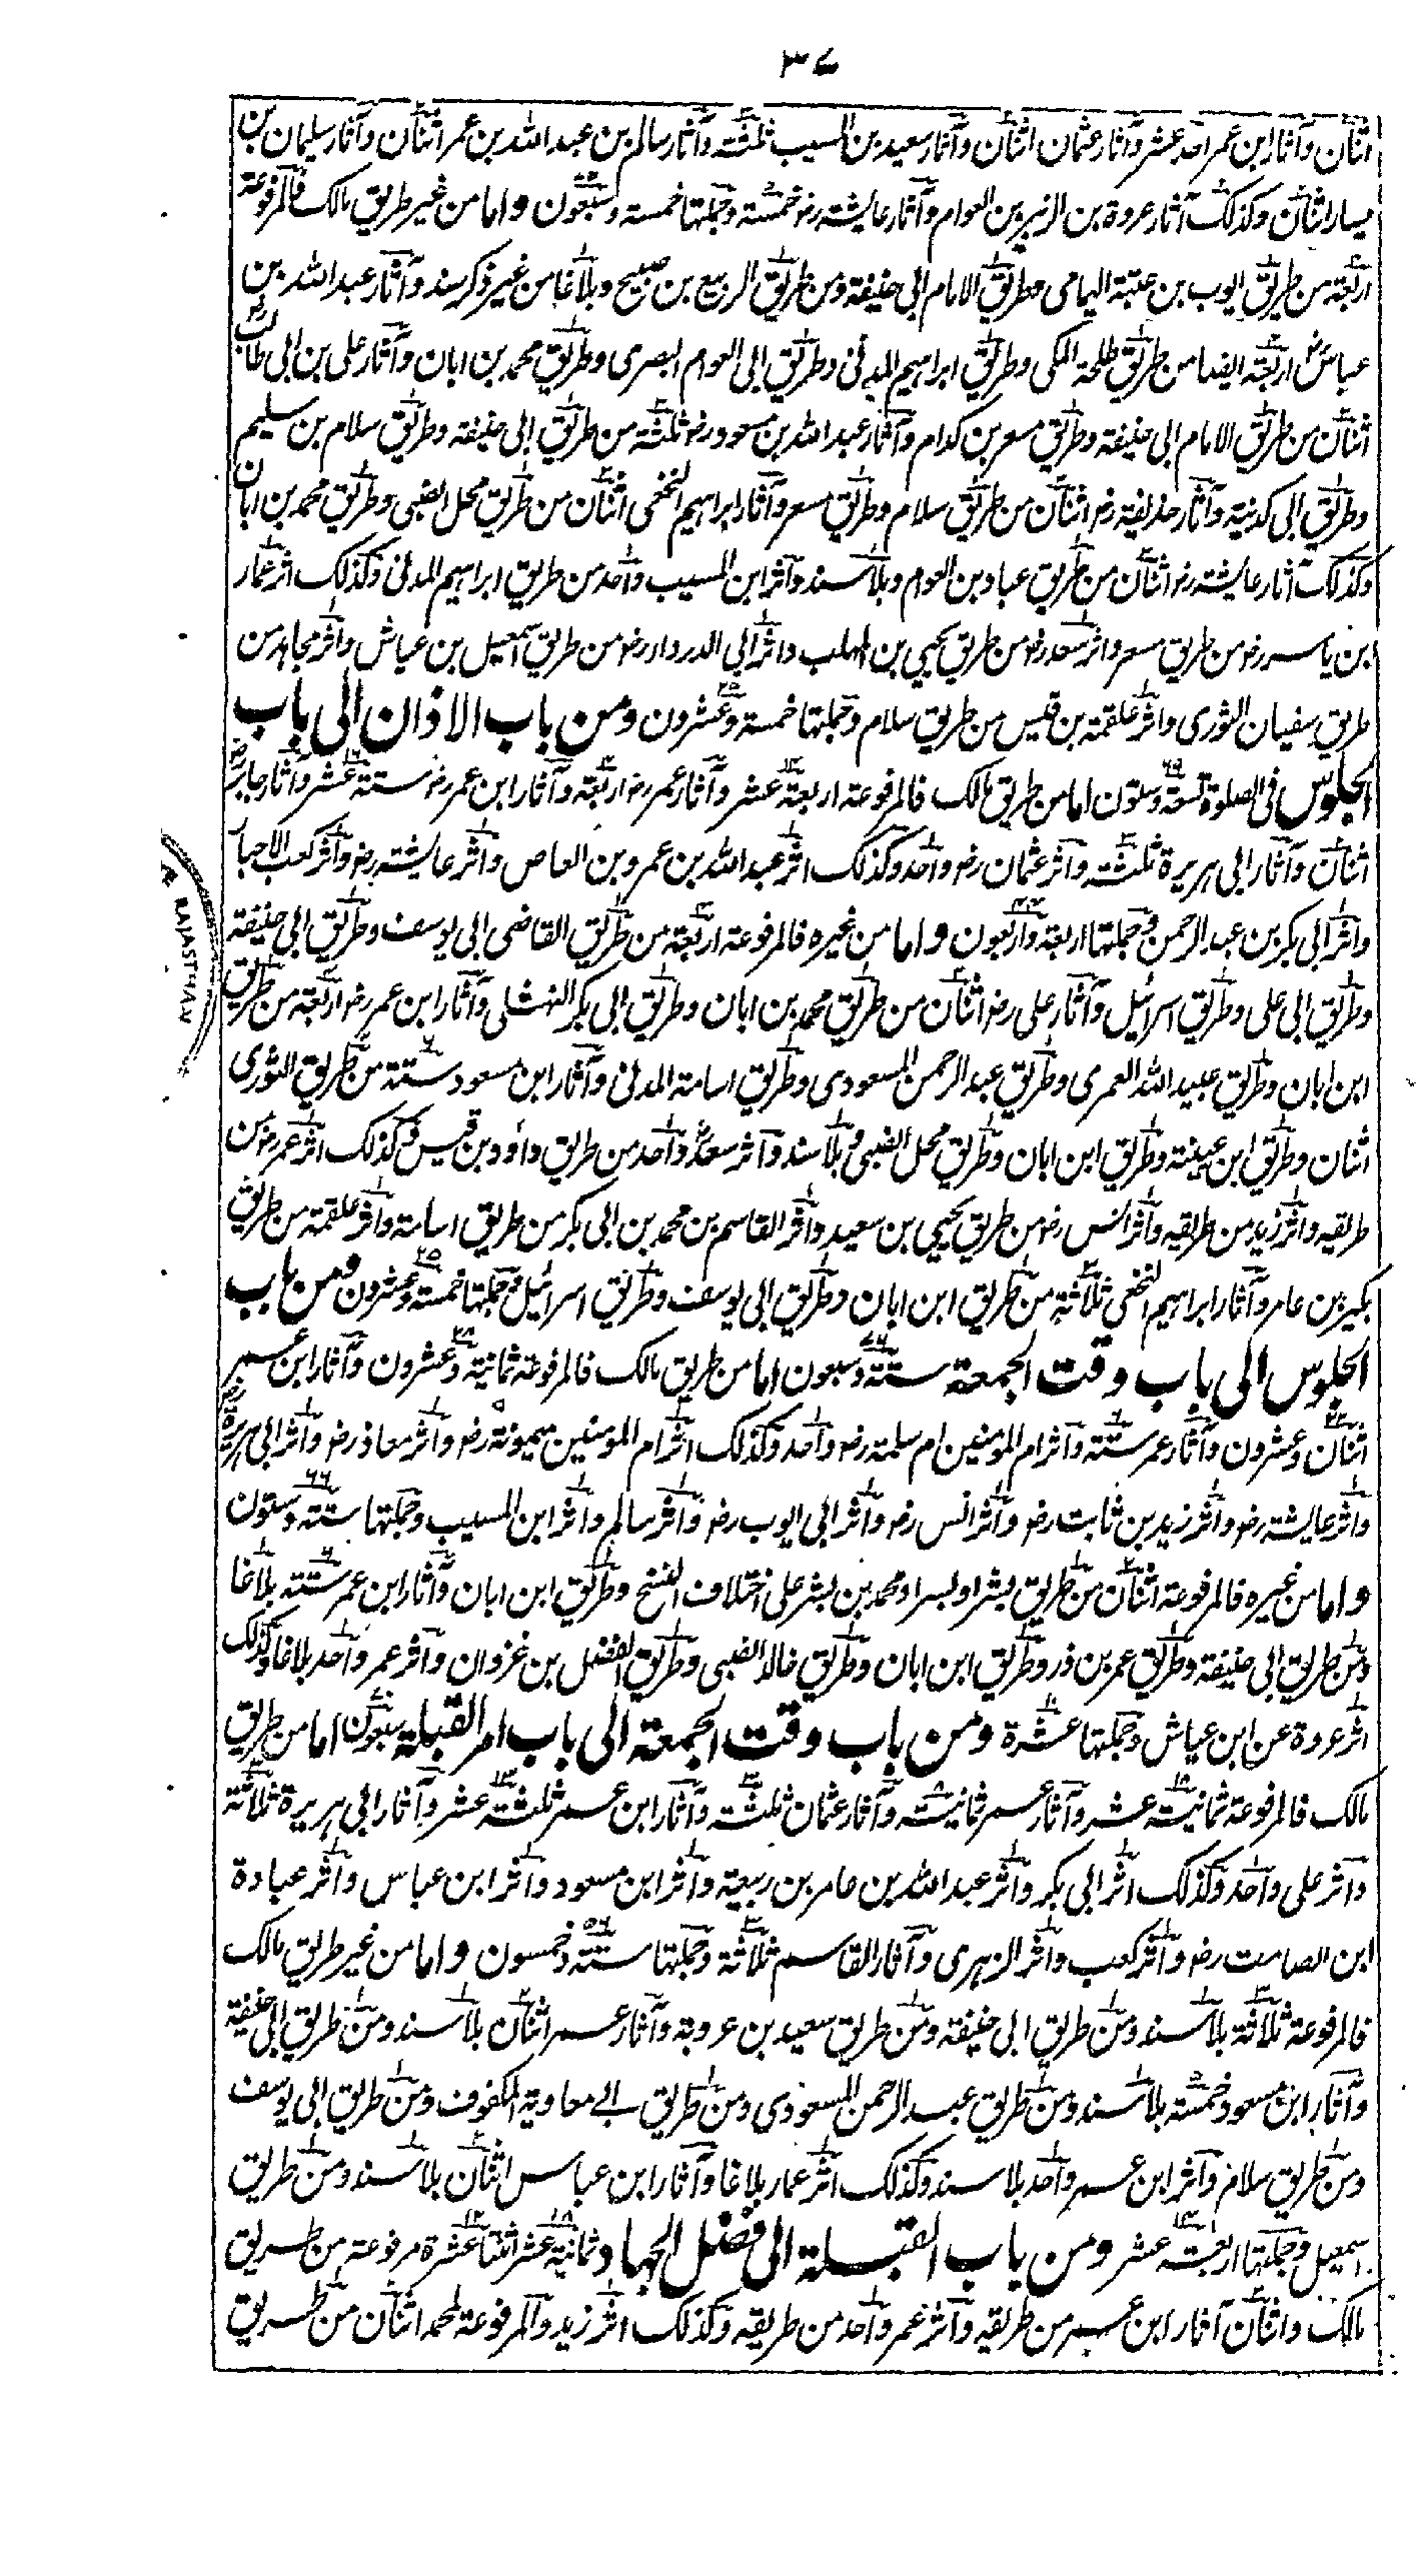 ٣٧
اثنان وآثار ابن عمر احد عشر وآثار عثمان اثنان وآثار سعيد بن المسيب ثلثة وآثار سالم بن عبد الله بن عمر اثنان وآثار سليمان بن
يسار اثنان وكذلك آثار عروة بن الزبير بن العوام وآثار عايشة رضـ خمسة وجملتها خمسة وسبعون واما من غير طريق مالك فالمرفوعة
اربعة من طريق ايوب بن عتبة اليمامي وطريق الامام ابي حنيفة ومن طريق الربيع بن صبيح وبلاغا من غير ذكر سند وآثار عبد الله بن
عباس رضـ اربعة ايضا من طريق طلحة المكي وطريق ابراهيم المدني وطريق ابي العوام البصري وطريق محمد بن ابان وآثار علي بن ابي طالب رضـ
اثنان من طريق الامام ابي حنيفة وطريق مسعر بن كدام وآثار عبد الله بن مسعود رضـ ثلثة من طريق ابي حنيفة وطريق سلام بن سليم
وطريق ابي كدينة وآثار حذيفة رضـ اثنان من طريق سلام وطريق مسعر وآثار ابراهيم النخعي اثنان من طريق محل الضبي وطريق محمد بن ابان
وكذلك آثار عايشة رضـ اثنان من طريق عباد بن العوام وبلا سند وآثر ابن المسيب واحد من طريق ابراهيم المدني وكذلك اثر عمار
ابن ياسر رضـ من طريق مسعر واثر سعد رضـ من طريق يحيى بن المهلب واثر ابي الدرداء رضـ من طريق اسمعيل بن عياش واثر مجاهد من
طريق سفيان الثوري واثر علقمة بن قيس من طريق سلام وجملتها خمسة وعشرون ومن باب الاذان الى باب
الجلوس في الصلوة تسعة وستون اما من طريق مالك فالمرفوعة اربعة عشر وآثار عمر رضـ اربعة وآثار ابن عمر رضـ ستة عشر وآثار جابر رضـ
اثنان وآثار ابي هريرة ثلثة وآثر عثمان رضـ واحد وكذلك اثر عبد الله بن عمرو بن العاص واثر عايشة رضـ واثر كعب الاحبار
واثر ابي بكر بن عبد الرحمن وجملتها اربعة واربعون واما من غيره فالمرفوعة اربعة من طريق القاضي ابي يوسف وطريق ابي حنيفة
وطريق ابي علي وطريق اسرائيل وآثار علي رضـ اثنان من طريق محمد بن ابان وطريق ابي بكر النهشلي وآثار ابن عمر رضـ اربعة من طريق
ابن ابان وطريق عبيد الله العمري وطريق عبد الرحمن المسعودي وطريق اسامة المدني وآثار ابن مسعود ستة من طريق الثوري
اثنان وطريق ابن عيينة وطريق ابن ابان وطريق محل الضبي وبلا سند وآثر سعد واحد من طريق داود بن قيس وكذلك اثر عمر رضـ من
طريقه واثر زيد من طريقه واثر انس رضـ من طريق يحيى بن سعيد واثر القاسم بن محمد بن ابي بكر من طريق اسامة واثر علقمة من طريق
بكير بن عامر وآثار ابراهيم النخعي ثلاثة من طريق ابن ابان وطريق ابي يوسف وطريق اسرائيل وجملتها خمسة وعشرون ومن باب
الجلوس الى باب وقت الجمعة ستة وسبعون اما من طريق مالك فالمرفوعة ثمانية وعشرون وآثار ابن عمر
اثنان وعشرون وآثار عمر ستة وآثر ام المومنين ام سلمة رضـ واحد وكذلك اثر ام المومنين ميمونة رضـ واثر معاذ رضـ واثر ابي هريرة رضـ
واثر عايشة رضـ واثر زيد بن ثابت رضـ واثر انس رضـ واثر ابي ايوب رضـ واثر سالم واثر ابن المسيب وجملتها ستة وستون
واما من غيره فالمرفوعة اثنان من طريق بشر او بسر او محمد بن بشر على اختلاف النسخ وطريق ابن ابان وآثار ابن عمر ستة بلاغا
ومن طريق ابي حنيفة وطريق عمر بن ذر وطريق ابن ابان وطريق خالد الضبي وطريق الفضل بن غزوان وآثر عمر واحد بلاغا وكذلك
اثر عروة عن ابن عياش وجملتها عشرة ومن باب وقت الجمعة الى باب امر القبلة سبعون اما من طريق
مالك فالمرفوعة ثمانية عشر وآثار عمر ثمانية وآثار عثمان ثلثة وآثار ابن عمر ثلثة عشر وآثار ابي هريرة ثلاثة
واثر علي واحد وكذلك اثر ابي بكر واثر عبد الله بن عامر بن ربيعة واثر ابن مسعود واثر ابن عباس واثر عبادة
ابن الصامت رضـ واثر كعب واثر الزهري وآثار القاسم ثلاثة وجملتها ستة وخمسون واما من غير طريق مالك
فالمرفوعة ثلاثة بلا سند ومن طريق ابي حنيفة ومن طريق سعيد بن عروبة وآثار عمر اثنان بلا سند ومن طريق ابي حنيفة
وآثار ابن مسعود خمسة بلا سند ومن طريق عبد الرحمن المسعودي ومن طريق ابي معاوية المكفوف ومن طريق ابي يوسف
ومن طريق سلام وآثر ابن عمر واحد بلا سند وكذلك اثر عمار بلاغا وآثار ابن عباس اثنان بلا سند ومن طريق
اسمعيل وجملتها اربعة عشر ومن باب القبلة الى فضل الجهاد ثمانية عشر اثنتا عشرة مرفوعة من طريق
مالك واثنان آثار ابن عمر من طريقه وآثر عمر واحد من طريقه وكذلك اثر زيد والمرفوعة لمحمد اثنان من طريق
RAJASTHAN